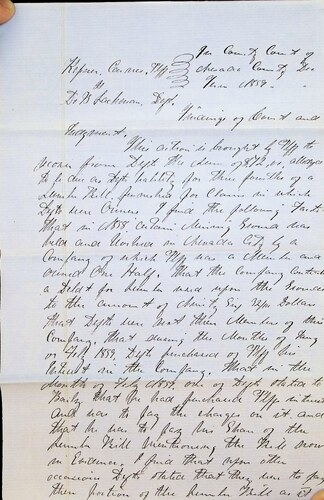 In County Court of
Kepner, Conner, Plff Nevada County
vs Term 1859.
Lachman, Deft.
Findings of Court and
Judgment.
This action is brought by Plff to
recover from Defts the sum of alleged
to be due as Defts liability for three fourths of a
Lumber Bill, furnished for Claim in which
Defts were Owners. I find the following Facts
that in 1858 Certain Mining Ground was
held and worked in Nevada City by a
Company of which Plff was a Member and
owned One Half. That the Company
a Debt for Lumber used upon the Ground
to the amount of Ninety Six Dollars
that Defts were not then Members of the
Company. That during the Months of
or Feby 1859, Deft purchased of Plff his
Interest in the Company. That in the
Month of Feby 1859, one of Defts stated to
that he had purchased Plffs interest
and was to pay the charges on it, and
that he was to pay his Share of the
Lumber Bill Mentioned, the Bill now
in Evidence. I find that upon other
occasions Defts stated that they were to pay
their portion of the Lumber Bill as it